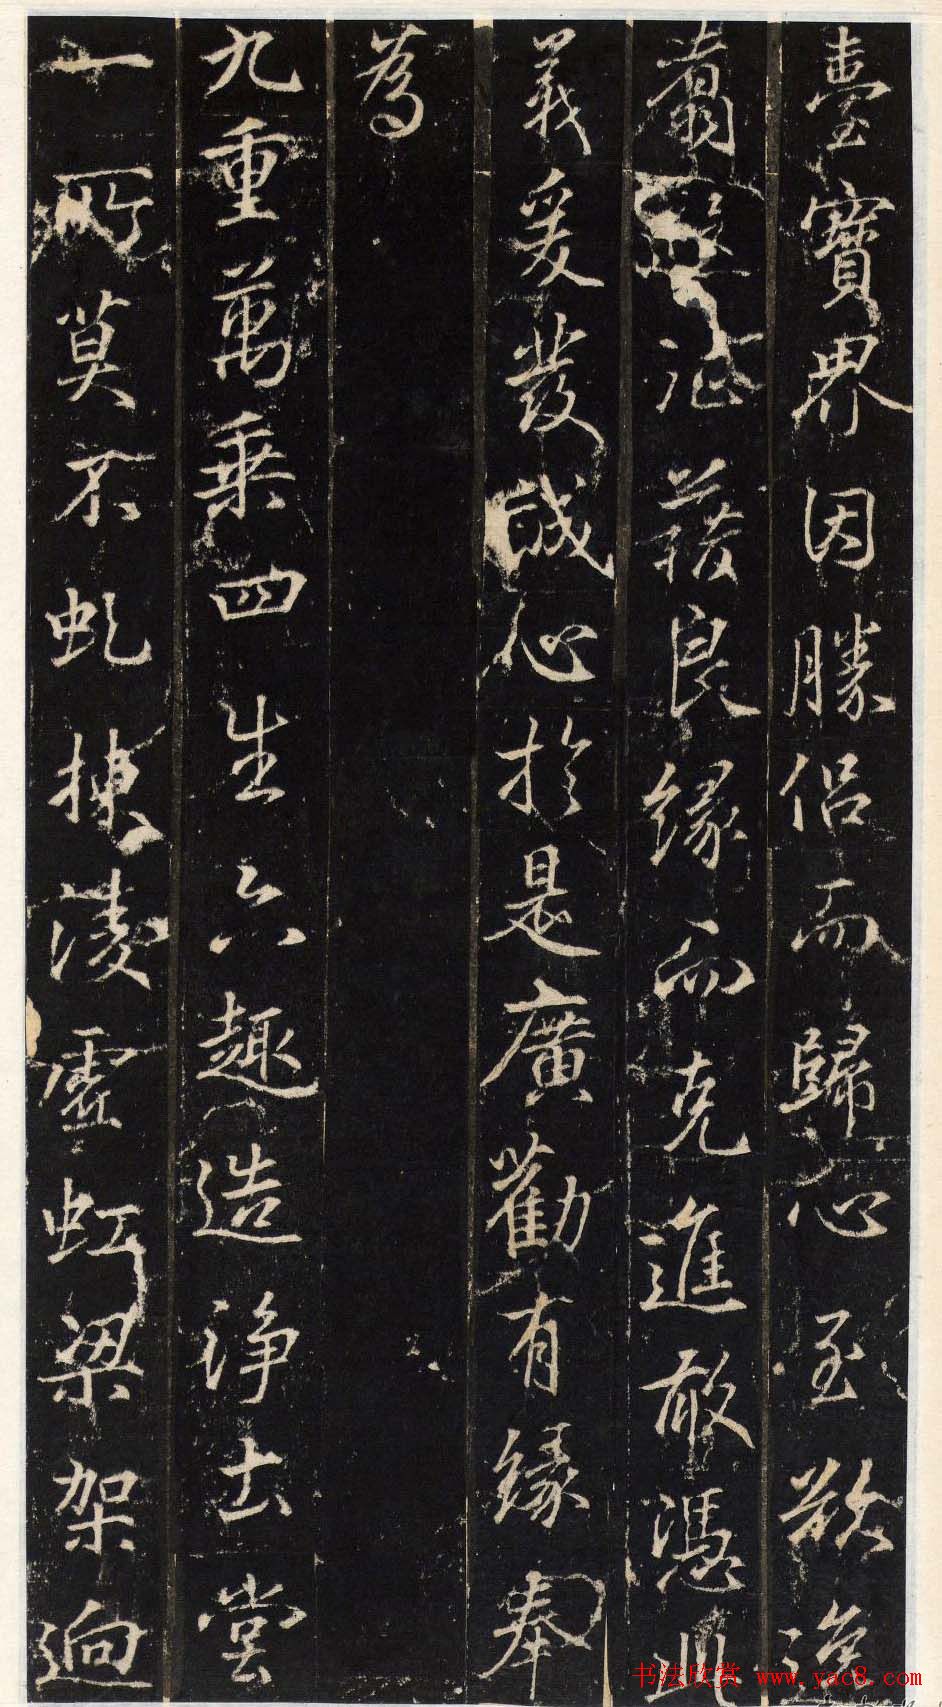 臺寶界因勝侣而歸心至欲逸
翥 泛藉良緣而克進敢憑此
義爰發誠心於是廣勸有緣奉
為
九重萬乘四生六趣造淨土堂
一所莫不虬揀淩雲虹梁架迥
书法欣赏 www.yac8.com